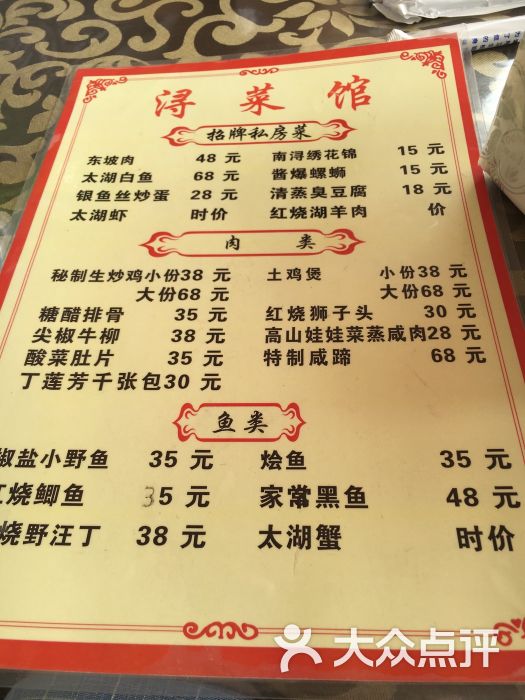 浔菜馆
招牌私房菜
东坡肉 48 元 南浔绣花锦 15 元
太湖白鱼 68 元 酱爆螺蛳 15 元
银鱼丝炒蛋 28 元 清蒸臭豆腐 18 元
太湖虾 时价 红烧湖羊肉 价
肉类
秘制生炒鸡小份38 元 土鸡煲 小份38 元
大份68 元 大份68 元
糖醋排骨 35 元 红烧狮子头 30 元
尖椒牛柳 38 元 高山娃娃菜蒸咸肉28 元
酸菜肚片 35 元 特制咸蹄 68 元
丁莲芳千张包30 元
鱼类
椒盐小野鱼 35 元 烩鱼 35 元
红烧鲫鱼 35 元 家常黑鱼 48 元
烧野汪丁 38 元 太湖蟹 时价
大众点评